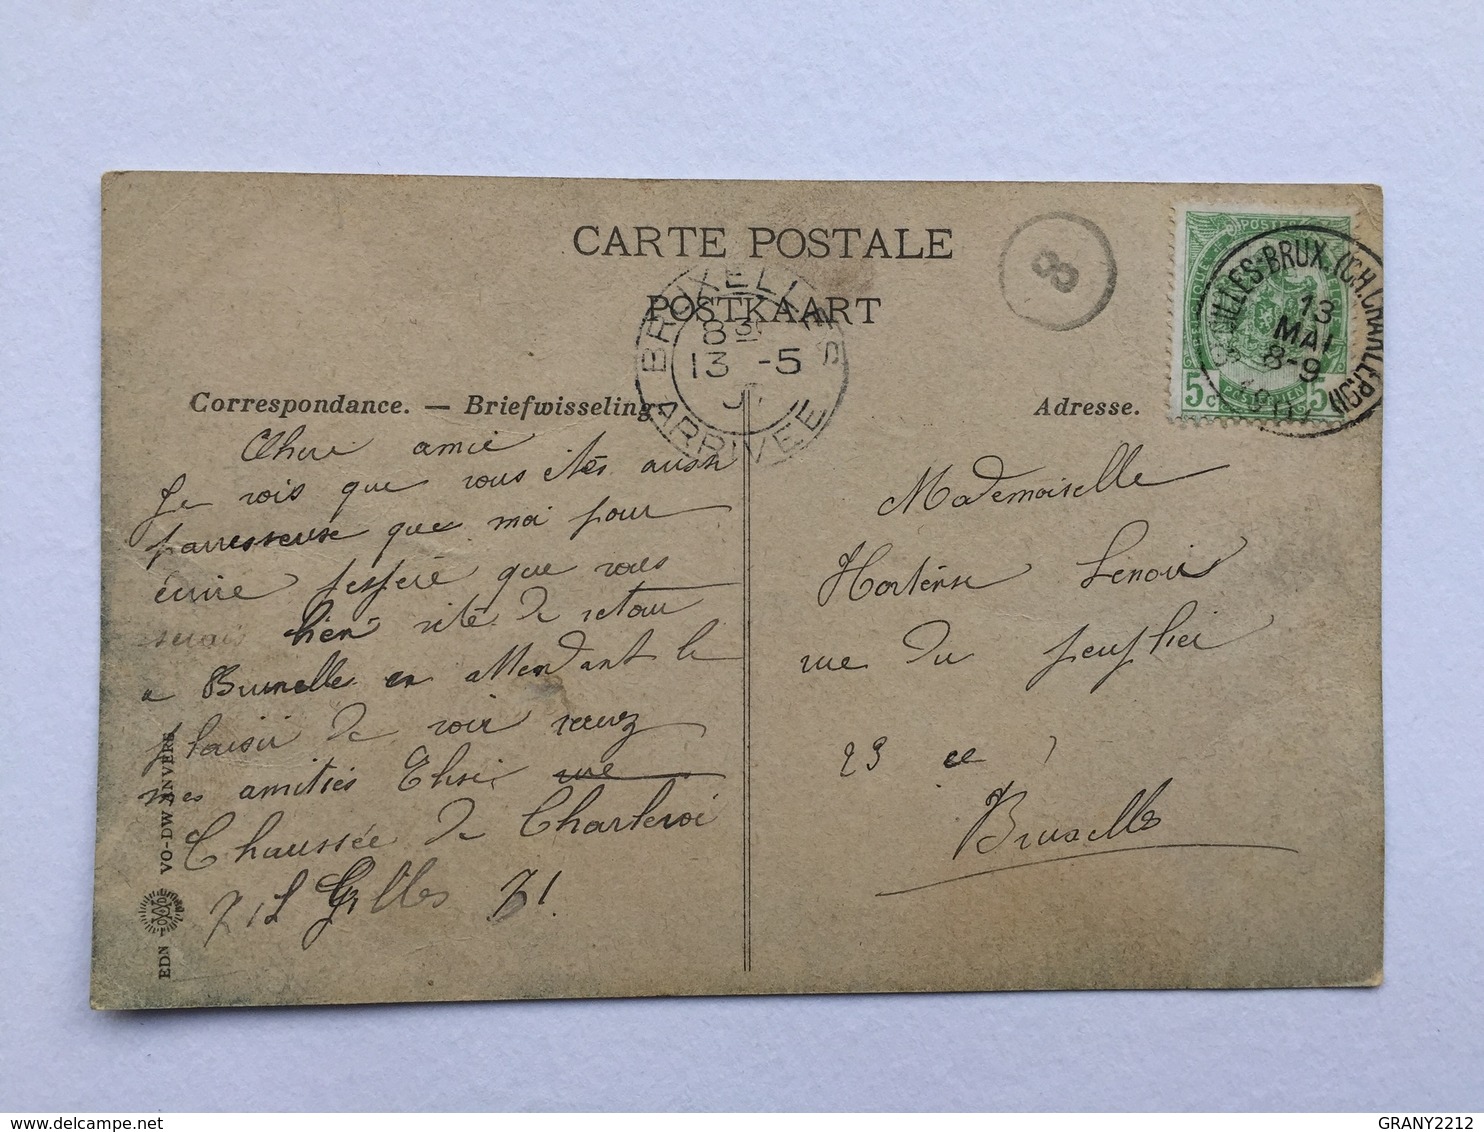 CARTE POSTALE
POSTKAART
BRUXELLES
8
13 -5
ARRIVEE
8
POSTES
13
MAI
8-9
5c 5c
Correspondance. — Briefwisseling.
Adresse.
Chere amie
Je vois que vous êtes aussi
parresseuse que moi pour
écrire j'espére que vous
serais bien vite de retour
a Bruxelle en attendant le
plaisir de voir recevez
mes amitiés Elise rue
Chaussée de Charleroi
71 St Gilles 71
Mademoiselle
Hortense Lenoir
rue du peuplier
23
Bruxelles
EDN VO-DW ANVERS.
GRANY2212